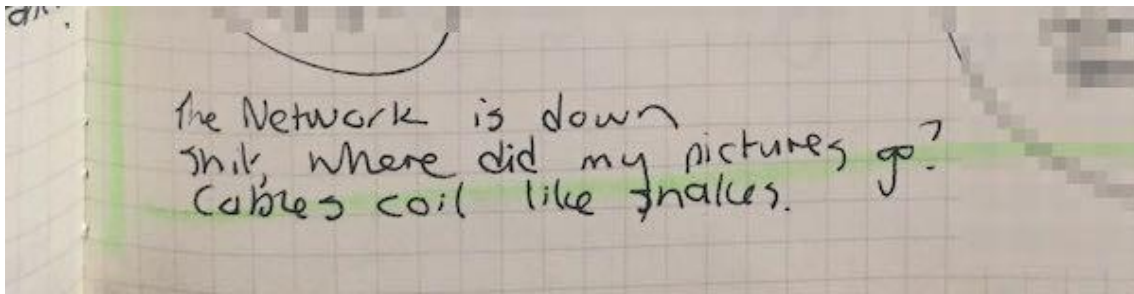 The Network is down
Shit, where did my pictures go?
Cables coil like snakes.